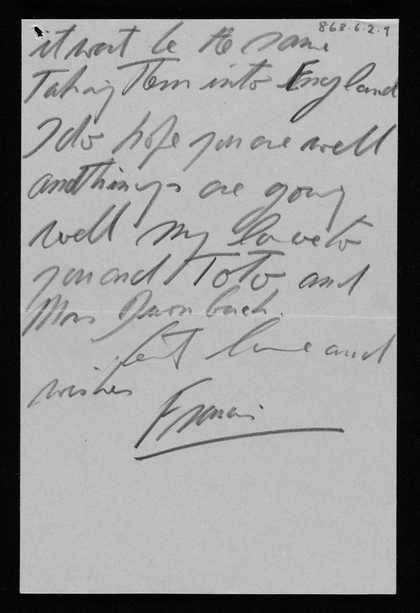 868.6.2.9
it wont be the same
Taking Them into England
I do hope you are well
and things are going
well my love to
you and ToTo and
Mrs
best love and
wishes
Francis